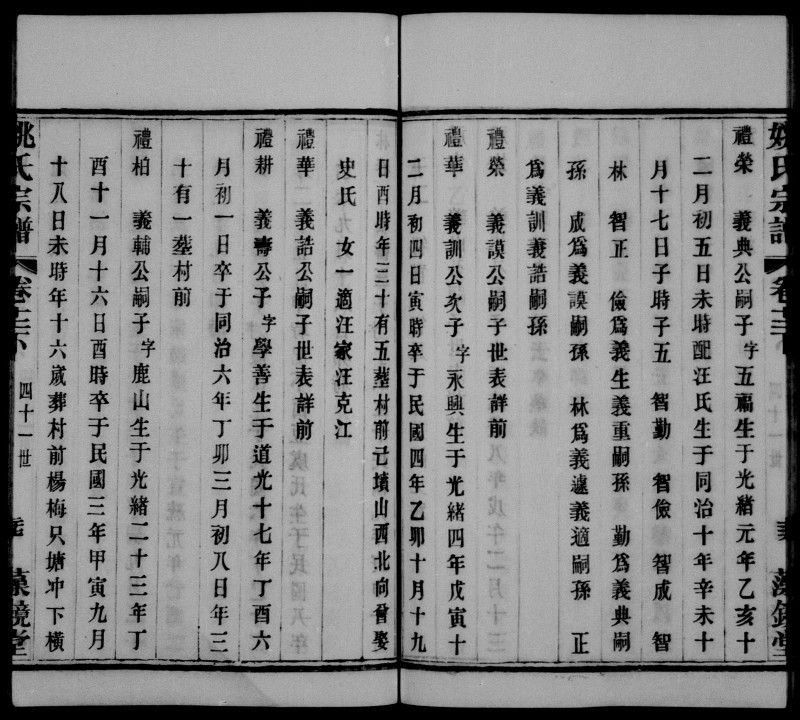 姚氏宗譜
卷十三下
四十一世
藻鏡堂
禮榮 義典公嗣子字五福生于光緒元年乙亥十
二月初五日未時配汪氏生于同治十年辛未十
月十七日子時子五 智勤 智儉 智成 智
林 智正 儉爲義生義重嗣孫 勤爲義典嗣
孫 成爲義謨嗣孫 林爲義遽義適嗣孫 正
爲義訓義誥嗣孫
禮榮 義謨公嗣子世表詳前
禮華 義訓公次子字永興生于光緒四年戊寅十
二月初四日寅時卒于民國四年乙卯十月十九
日酉時年三十有五塟村前己墳山西北向曾娶
史氏 女一適汪家汪克江
禮華 義誥公嗣子世表詳前
禮耕 義壽公子字學善生于道光十七年丁酉六
月初一日卒于同治六年丁卯三月初八日年三
十有一塟村前
禮柏 義輔公嗣子字鹿山生于光緒二十三年丁
酉十一月十六日酉時卒于民國三年甲寅九月
十八日未時年十六歲葬村前楊梅只塘冲下橫
姚氏宗譜
卷十三下
四十一世
藻鏡堂